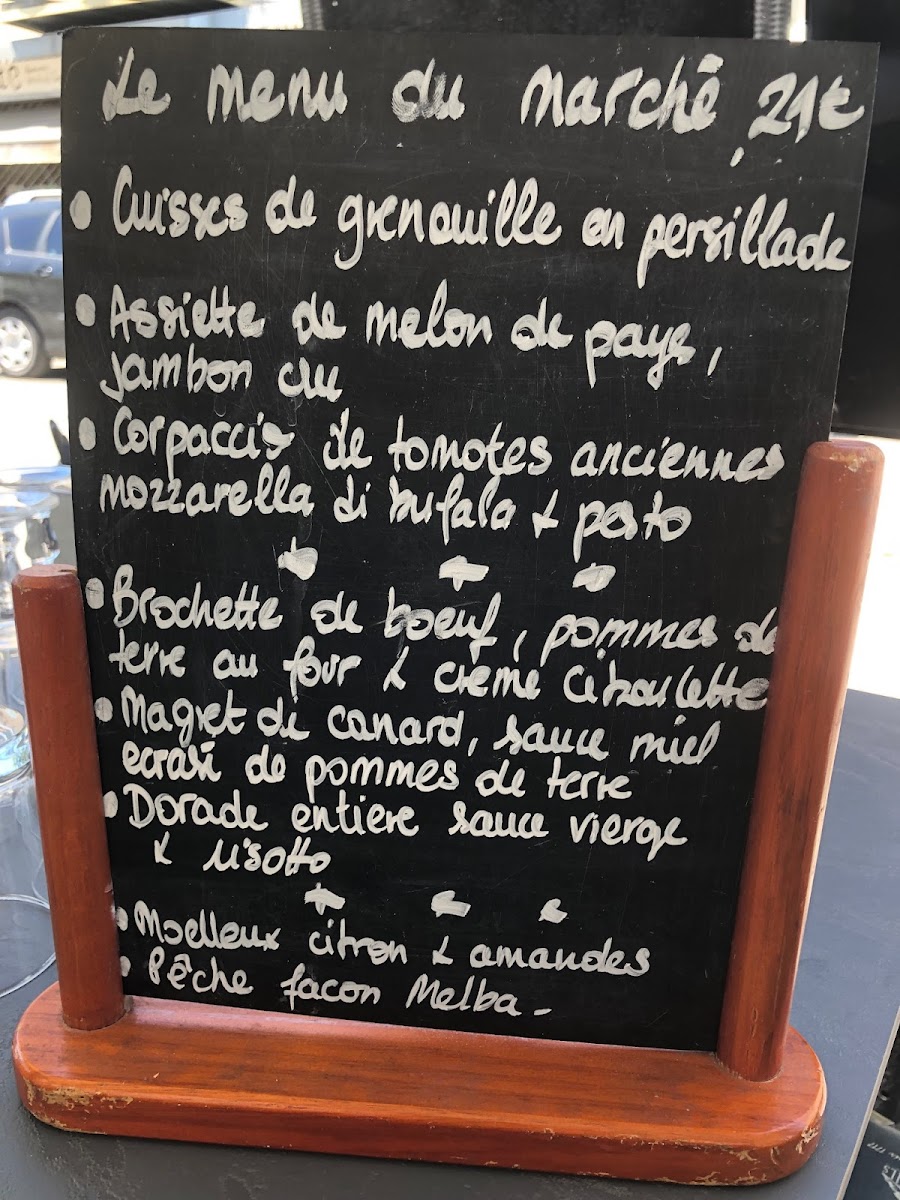 Le menu du marché 21€
• Cuisses de grenouille en persillade
• Assiette de melon de pays,
jambon cru
• Carpaccio de tomates anciennes
mozzarella di bufala & pesto
• Brochette de boeuf, pommes de
terre au four & creme ciboulette
• Magret de canard, sauce miel
ecrasé de pommes de terre
• Dorade entiere sauce vierge
& risotto
• Moelleux citron & amandes
• Pêche facon Melba -